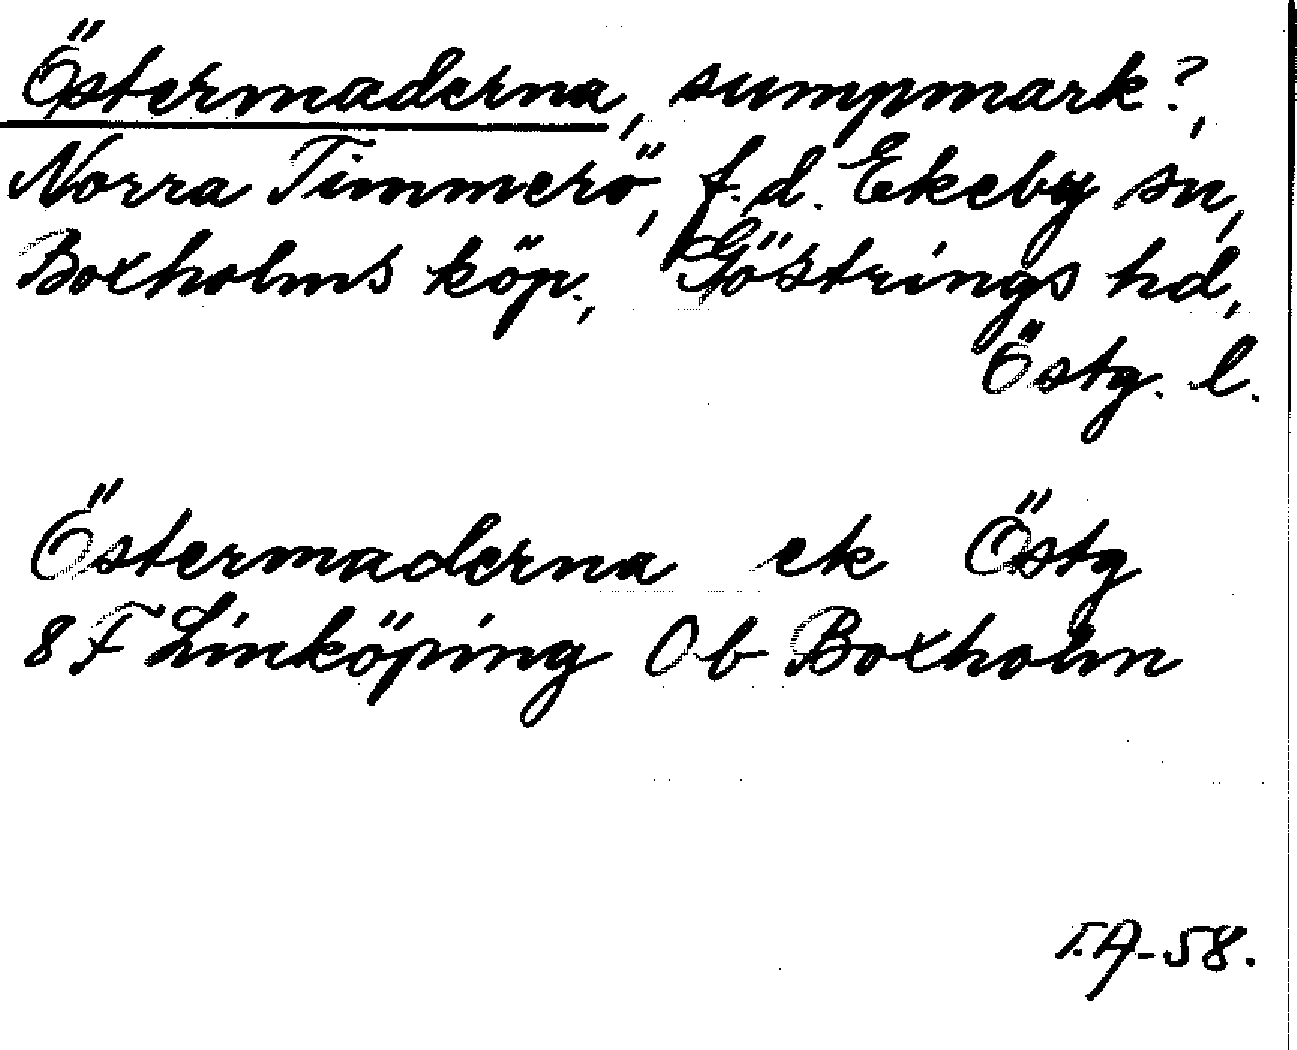 Östermaderna, sumpmark?,
Norra Timmerö, f.d. Ekeby sn,
Boxholms köp., Göstrings hd,
Östg. l.
Östermaderna ek Östg
8F Linköping Ob Boxholm
T.A-58.